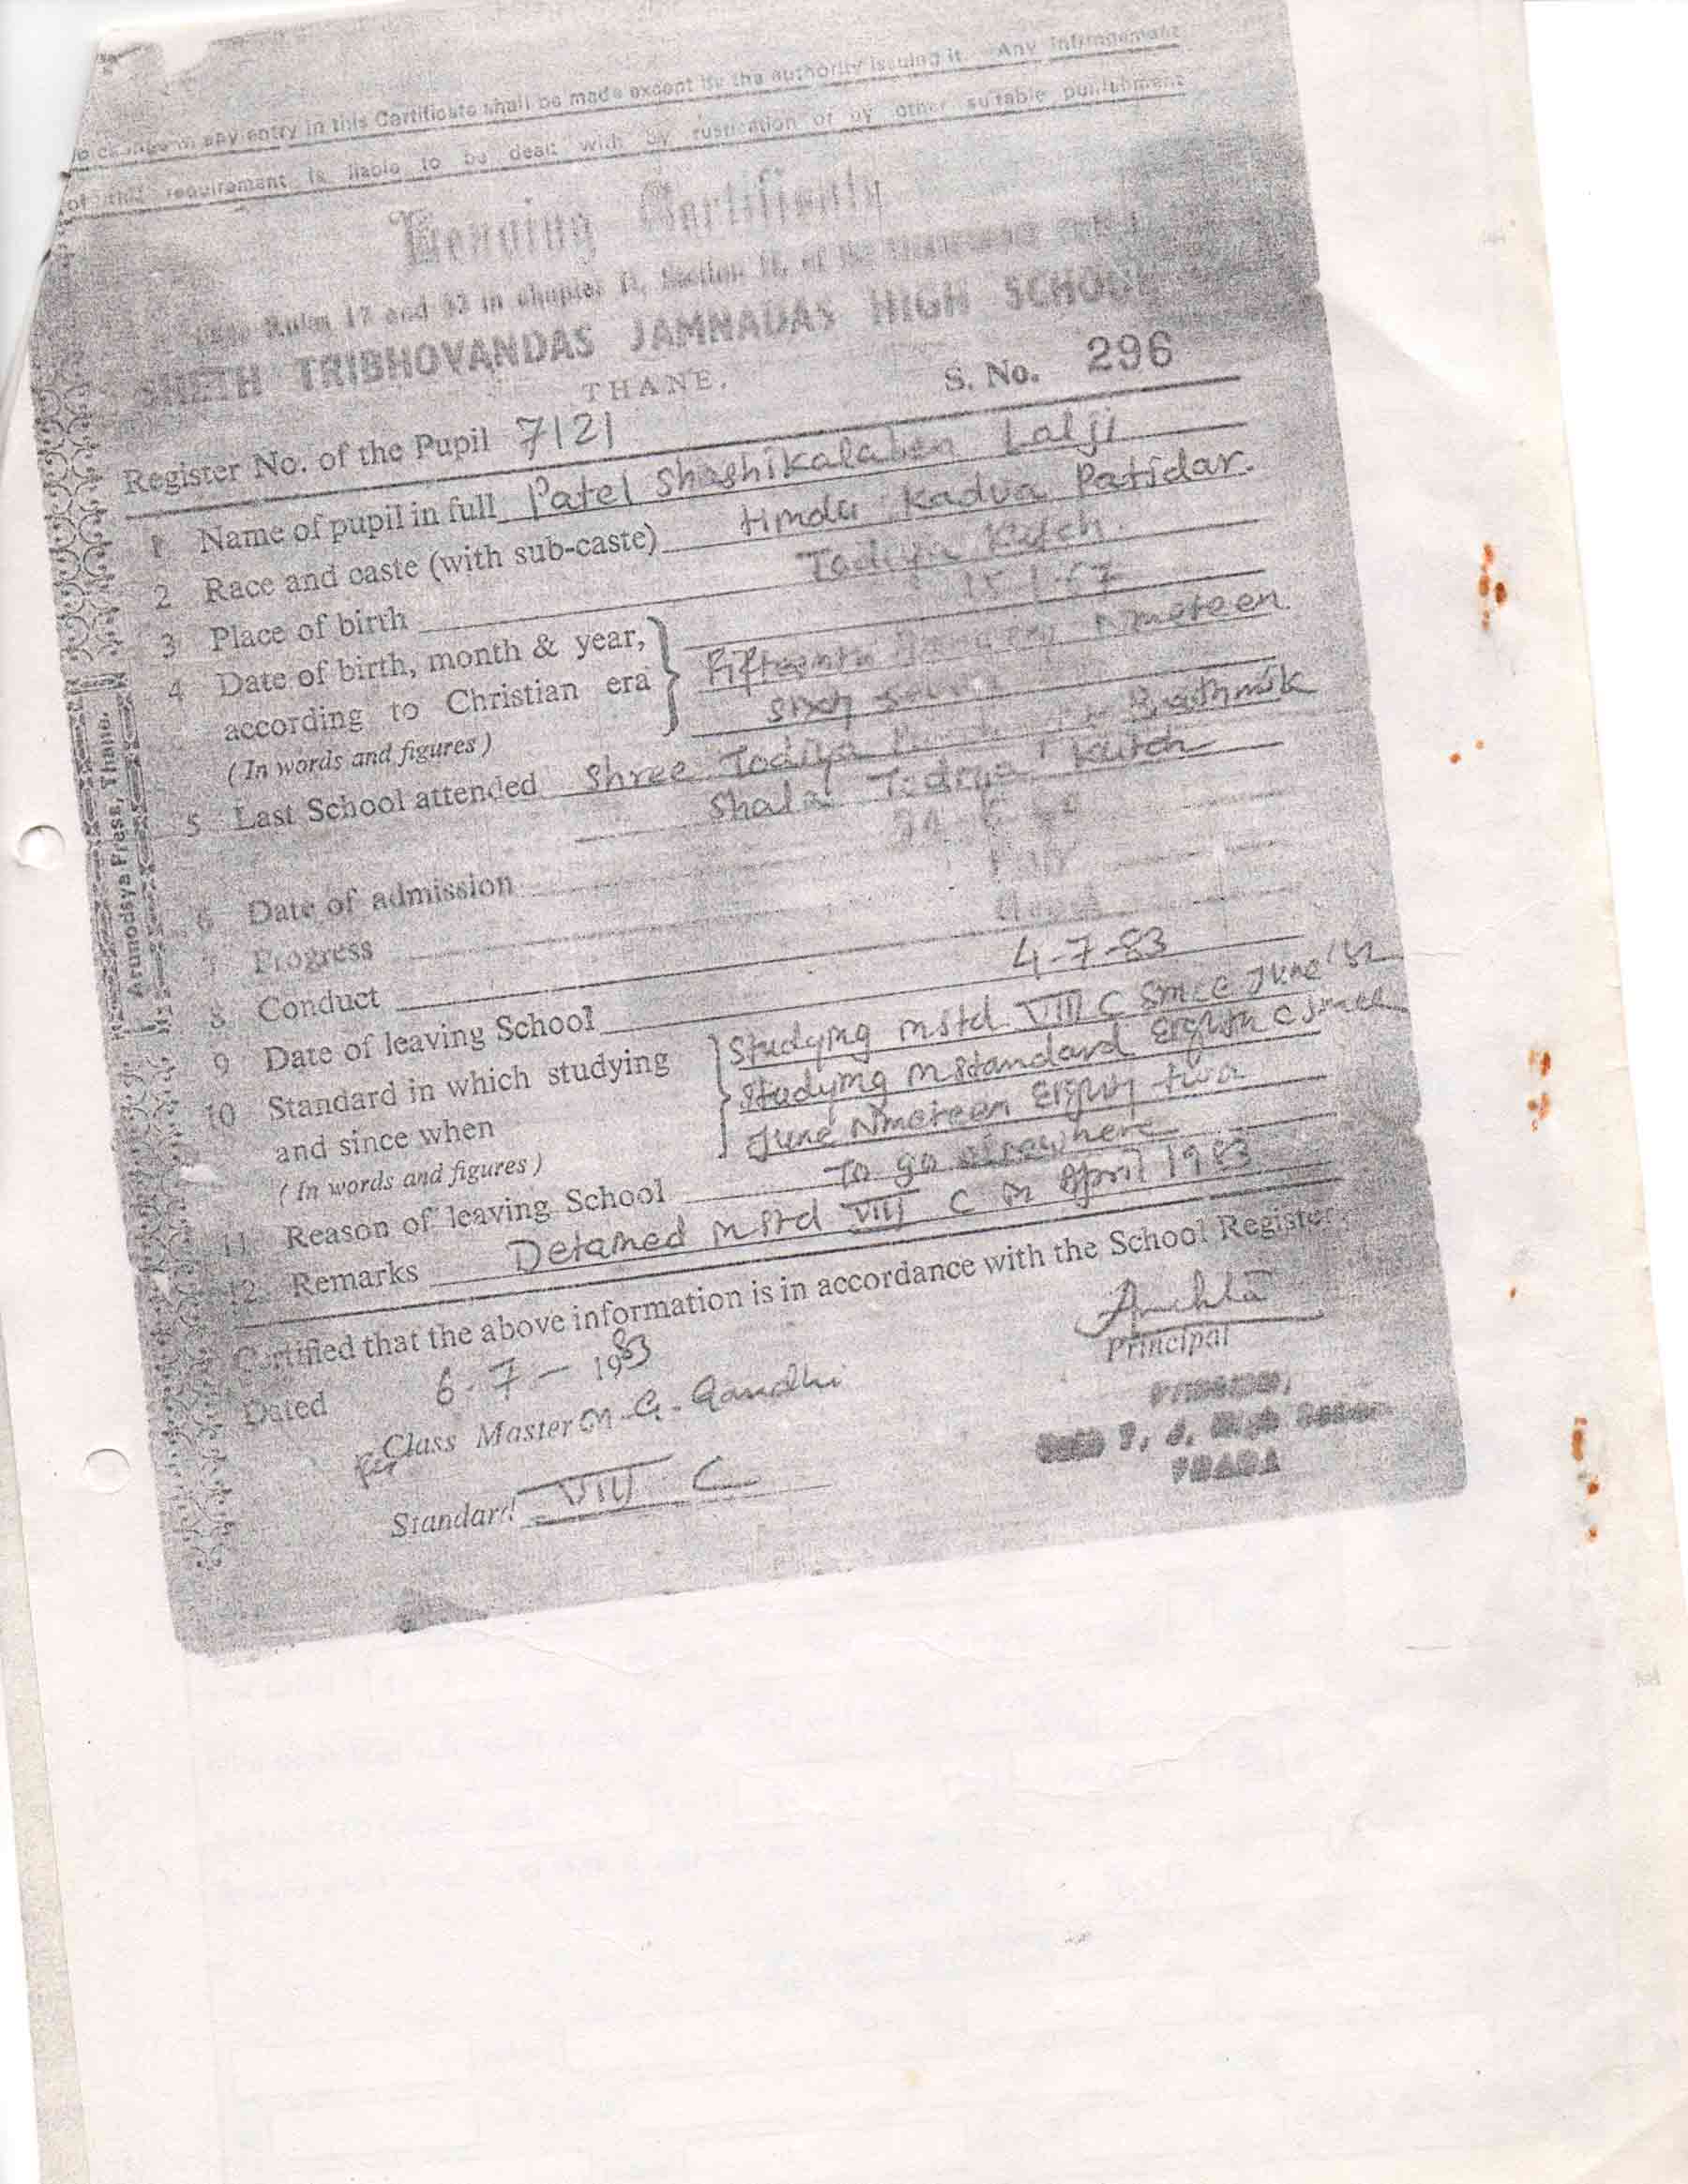 No change in any entry in this Certificate shall be made except by the authority issuing it. Any infringement
of this requirement is liable to be dealt with by rustication or by other suitable punishment
Leaving Certificate
Rules 17 and 32 in chapter II, Section II, of the
SHETH TRIBHOVANDAS JAMNADAS HIGH SCHOOL
THANE.
S. No. 296
Register No. of the Pupil 7121
1 Name of pupil in full Patel Shashikalaben Lalji
2 Race and caste (with sub-caste) Hindu Kadva Patidar.
3 Place of birth Todiya Kutch.
4 Date of birth, month & year, 15-1-67
according to Christian era Fifteenth January Nineteen
(In words and figures) sixty seven
5 Last School attended Shree Todiya Prathmik
Shala Todiya Kutch
6 Date of admission
7 Progress Fair
8 Conduct Good
9 Date of leaving School 4-7-83
10 Standard in which studying Studying in std. VIII C Since June '82
and since when Studying in standard Eighth C since
(In words and figures) June Nineteen Eighty two
11 Reason of leaving School To go elsewhere
12. Remarks Detained in std VIII C in April 1983
Certified that the above information is in accordance with the School Register.
Dated 6-7-1983
Principal
for Class Master M. G. Gandhi
PRINCIPAL,
Sheth T. J. High School
THANA
Standard VIII C
Arunodaya Press, Thane.